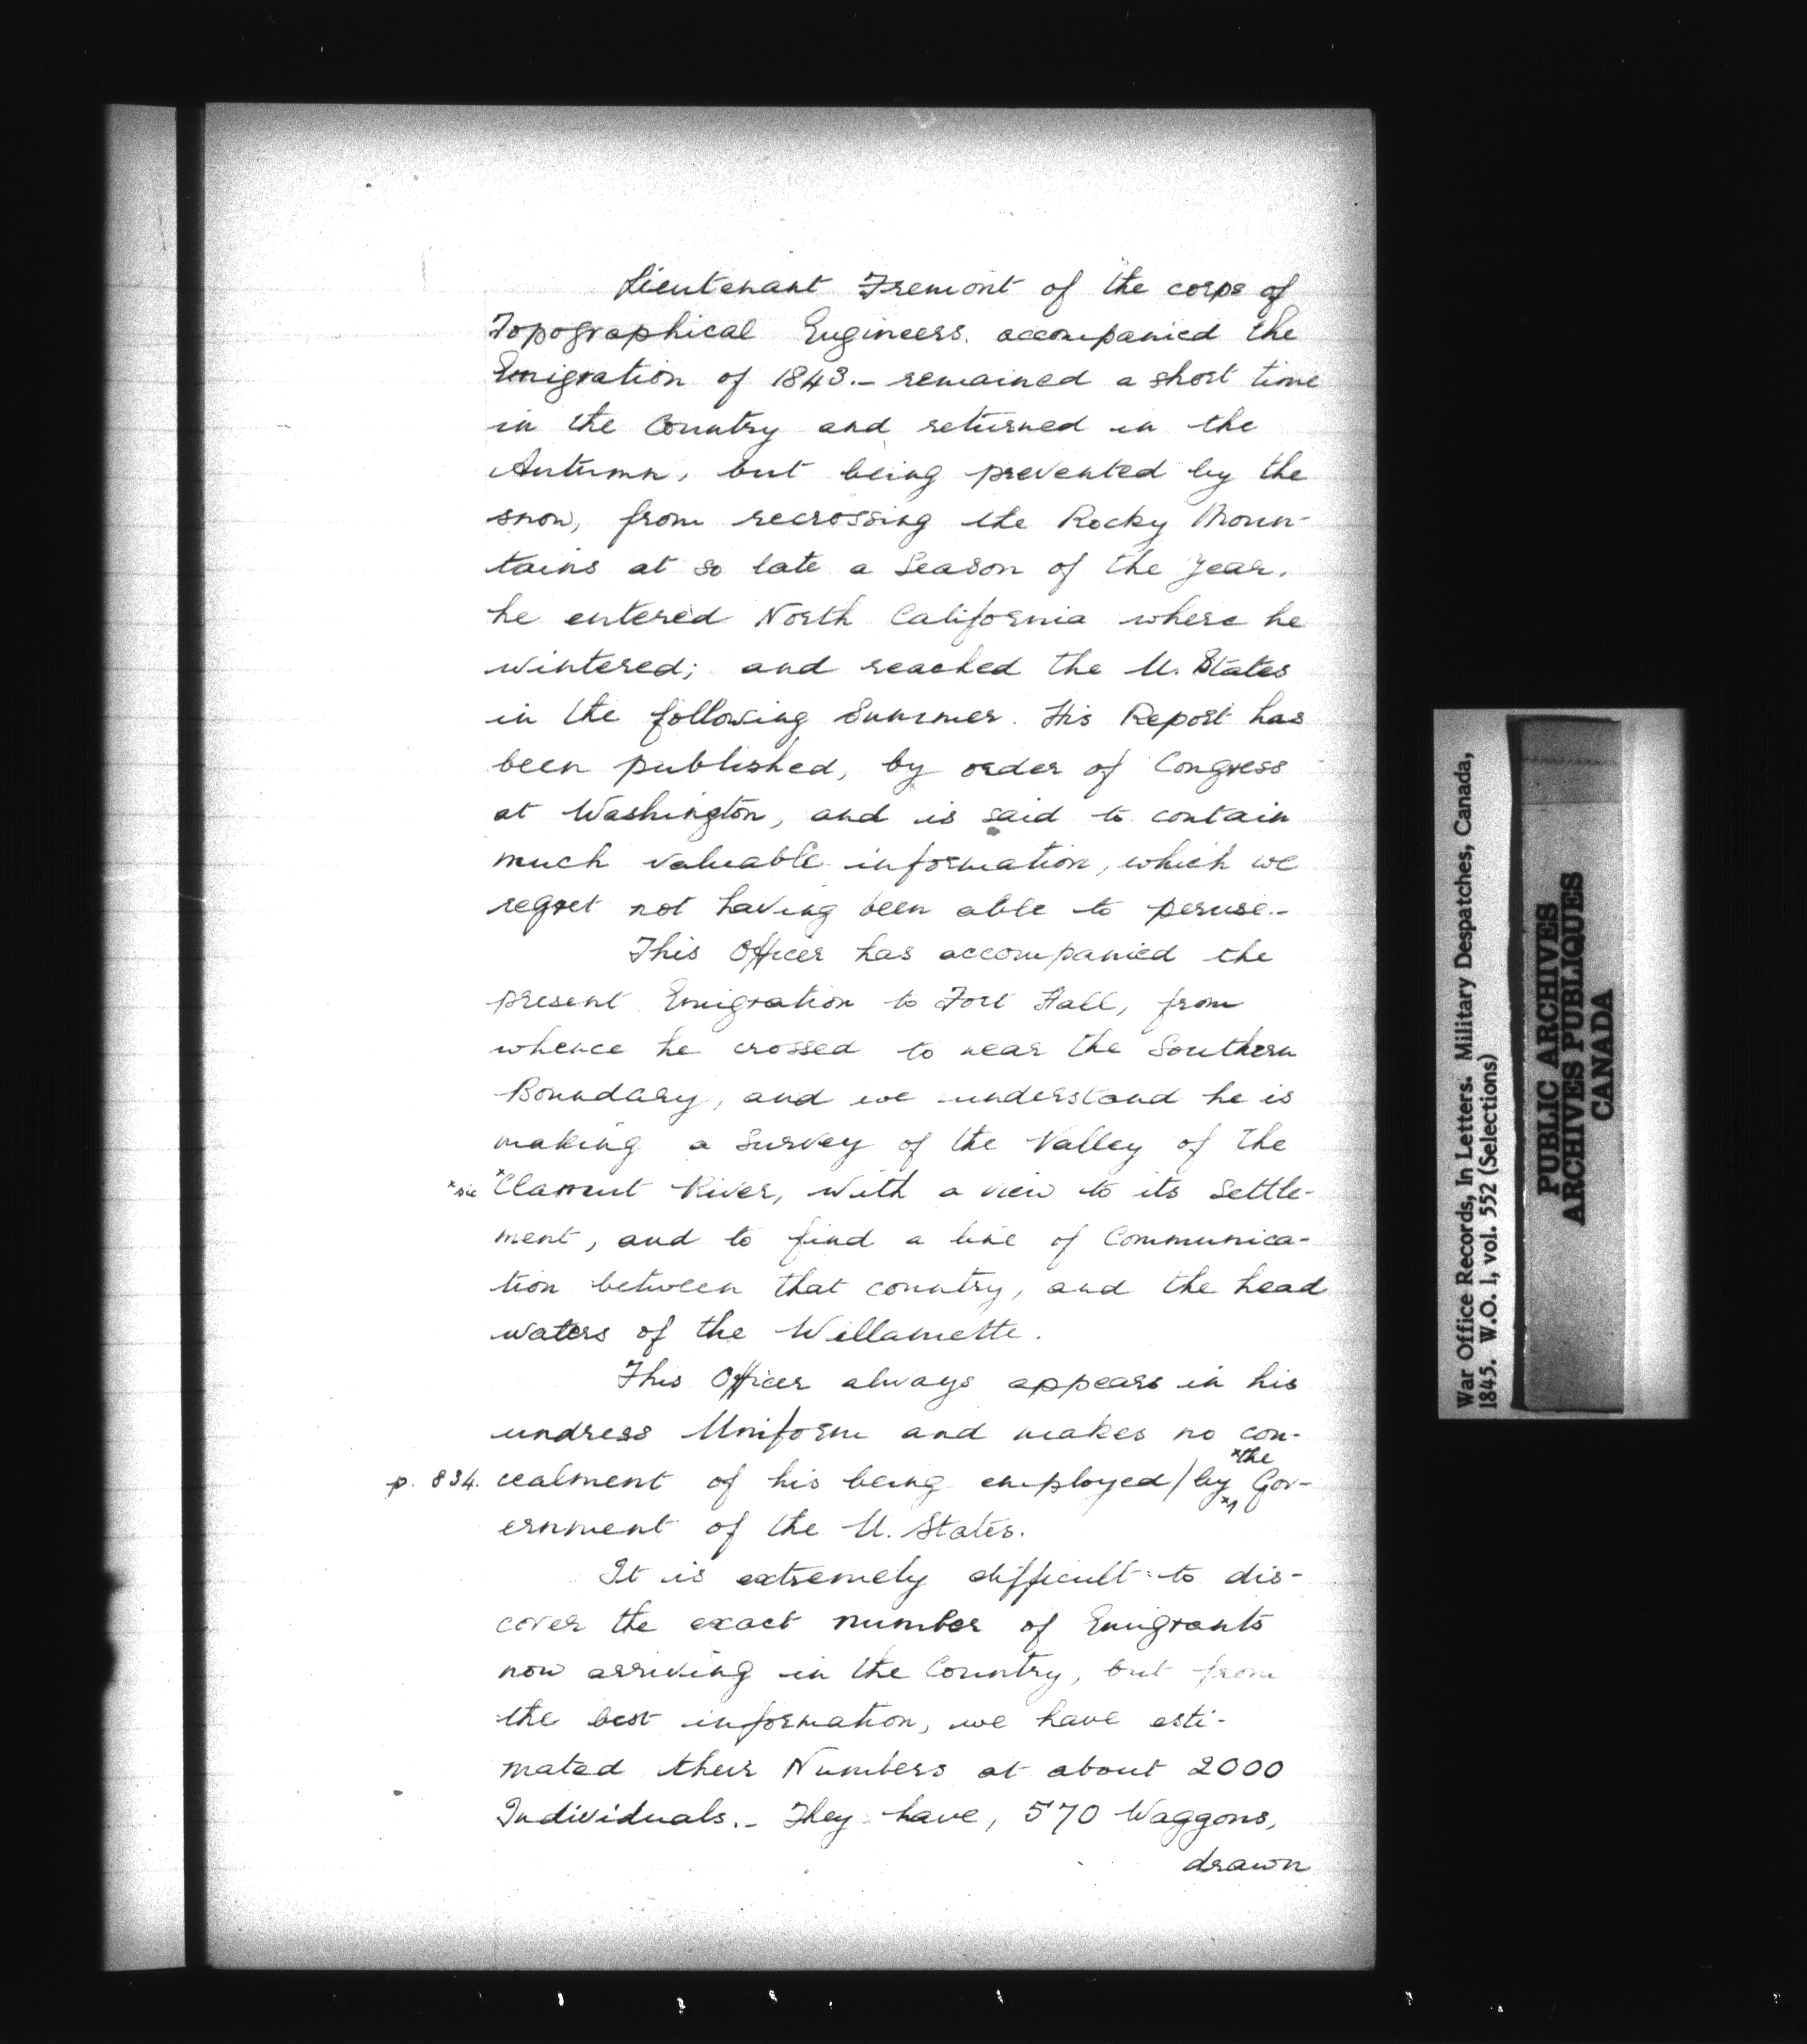 Lieutenant Fremont of the corps of
Topographical Engineers. accompanied the
Emigration of 1843.- remained a short time
in the Country and returned in the
Autumn, but being prevented by the
snow, from recrossing the Rocky Moun-
tains at so late a Season of the Year.
he entered North California where he
wintered; and reached the U. States
in the following Summer. His Report has
been published, by order of Congress
at Washington, and is said to contain
much valuable information, which we
regret not having been able to peruse.-
This Officer has accompanied the
present Emigration to Fort Hall, from
whence he crossed to near the Southern
Boundary, and we understand he is
making a Survey of the Valley of the
*sic *Clamut River, with a view to its Settle-
ment, and to find a line of Communica-
tion between that country, and the head
waters of the Willamette.
This Officer always appears in his
undress Uniform and makes no con-
*the
p. 834. cealment of his being employed/by Gov-
ernment of the U. States.
It is extremely difficult to dis-
cover the exact number of Emigrants
now arriving in the Country, but from
the best information, we have esti-
mated their Numbers at about 2000
Individuals.- They have, 570 Waggons,
drawn
War Office Records, In Letters. Military Despatches, Canada,
1845. W.O. 1, vol. 552 (Selections)
PUBLIC ARCHIVES
ARCHIVES PUBLIQUES
CANADA